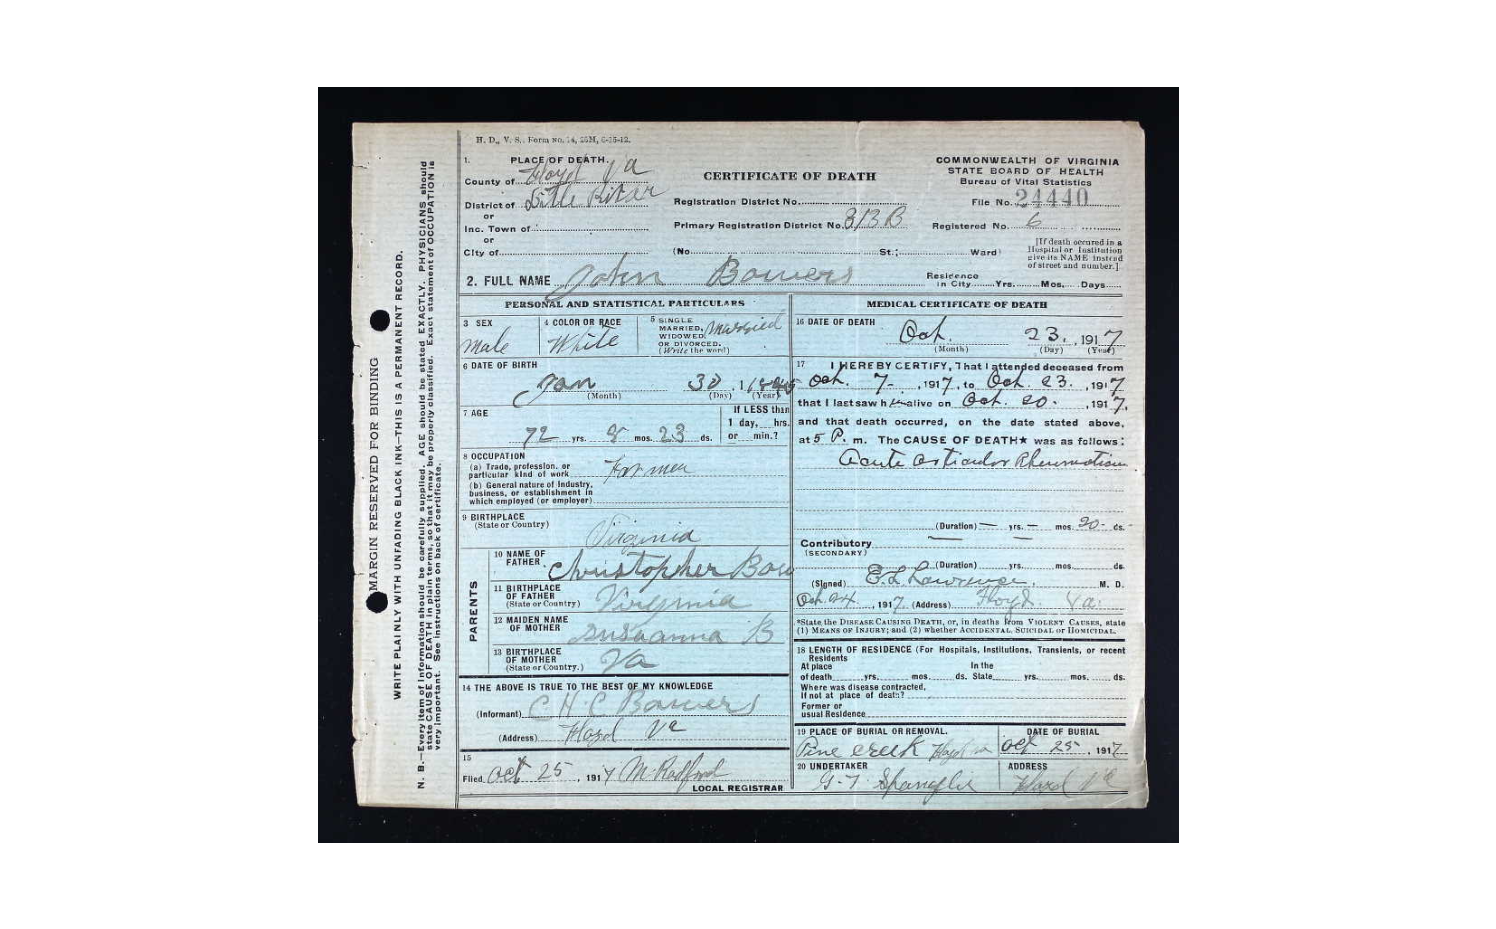 H. D., V. S., Form No. 14, 25M, 6-15-12.
1. PLACE OF DEATH.
County of Floyd Va
District of Little River
or
Inc. Town of
or
City of
CERTIFICATE OF DEATH
Registration District No.
Primary Registration District No. 313B
(No. St.; Ward)
COMMONWEALTH OF VIRGINIA
STATE BOARD OF HEALTH
Bureau of Vital Statistics
File No. 24440
Registered No. 6
[If death occured in a
Hospital or Institution
give its NAME instead
of street and number.]
2. FULL NAME John Bowers
Residence
in City Yrs. Mos. Days
PERSONAL AND STATISTICAL PARTICULARS
3 SEX
Male
4 COLOR OR RACE
White
5 SINGLE
MARRIED,
WIDOWED,
OR DIVORCED.
(Write the word)
Married
6 DATE OF BIRTH
Jan 30, 1845
(Month) (Day) (Year)
7 AGE
72 yrs. 8 mos. 23 ds.
If LESS than
1 day, hrs.
or min.?
8 OCCUPATION
(a) Trade, profession, or
particular kind of work Farmer
(b) General nature of Industry,
business, or establishment in
which employed (or employer)
9 BIRTHPLACE
(State or Country)
Virginia
PARENTS
10 NAME OF
FATHER Christopher Bow
11 BIRTHPLACE
OF FATHER
(State or Country) Virginia
12 MAIDEN NAME
OF MOTHER Susanna B
13 BIRTHPLACE
OF MOTHER
(State or Country.) Va
14 THE ABOVE IS TRUE TO THE BEST OF MY KNOWLEDGE
(Informant) C H C Bowers
(Address) Floyd Va
15
Filed Oct 25, 1917 M Radford
LOCAL REGISTRAR
MEDICAL CERTIFICATE OF DEATH
16 DATE OF DEATH
Oct. 23., 1917
(Month) (Day) (Year)
17 I HEREBY CERTIFY, That I attended deceased from
Oct. 7-, 1917, to Oct. 23., 1917
that I last saw h alive on Oct. 20., 1917,
and that death occurred, on the date stated above,
at 5 P. m. The CAUSE OF DEATH★ was as follows:
Acute articular Rheumatism
(Duration) — yrs. — mos. 20- ds.
Contributory
(SECONDARY)
(Duration) yrs. mos. ds.
(Signed) E. L. Lawrence M. D.
Oct 24, 1917. (Address) Floyd. Va.
*State the DISEASE CAUSING DEATH, or, in deaths from VIOLENT CAUSES, state
(1) MEANS OF INJURY; and (2) whether ACCIDENTAL, SUICIDAL or HOMICIDAL.
18 LENGTH OF RESIDENCE (For Hospitals, Institutions, Transients, or recent
Residents
At place In the
of death yrs. mos. ds. State yrs. mos. ds.
Where was disease contracted,
If not at place of death?
Former or
usual Residence
19 PLACE OF BURIAL OR REMOVAL.
Pine creek Floyd
DATE OF BURIAL
Oct 25, 1917
20 UNDERTAKER
G. T. Spangler
ADDRESS
Floyd Va
MARGIN RESERVED FOR BINDING
WRITE PLAINLY WITH UNFADING BLACK INK—THIS IS A PERMANENT RECORD.
N. B.—Every item of information should be carefully supplied. AGE should be stated EXACTLY. PHYSICIANS should
state CAUSE OF DEATH in plain terms, so that it may be properly classified. Exact statement of OCCUPATION is
very important. See instructions on back of certificate.